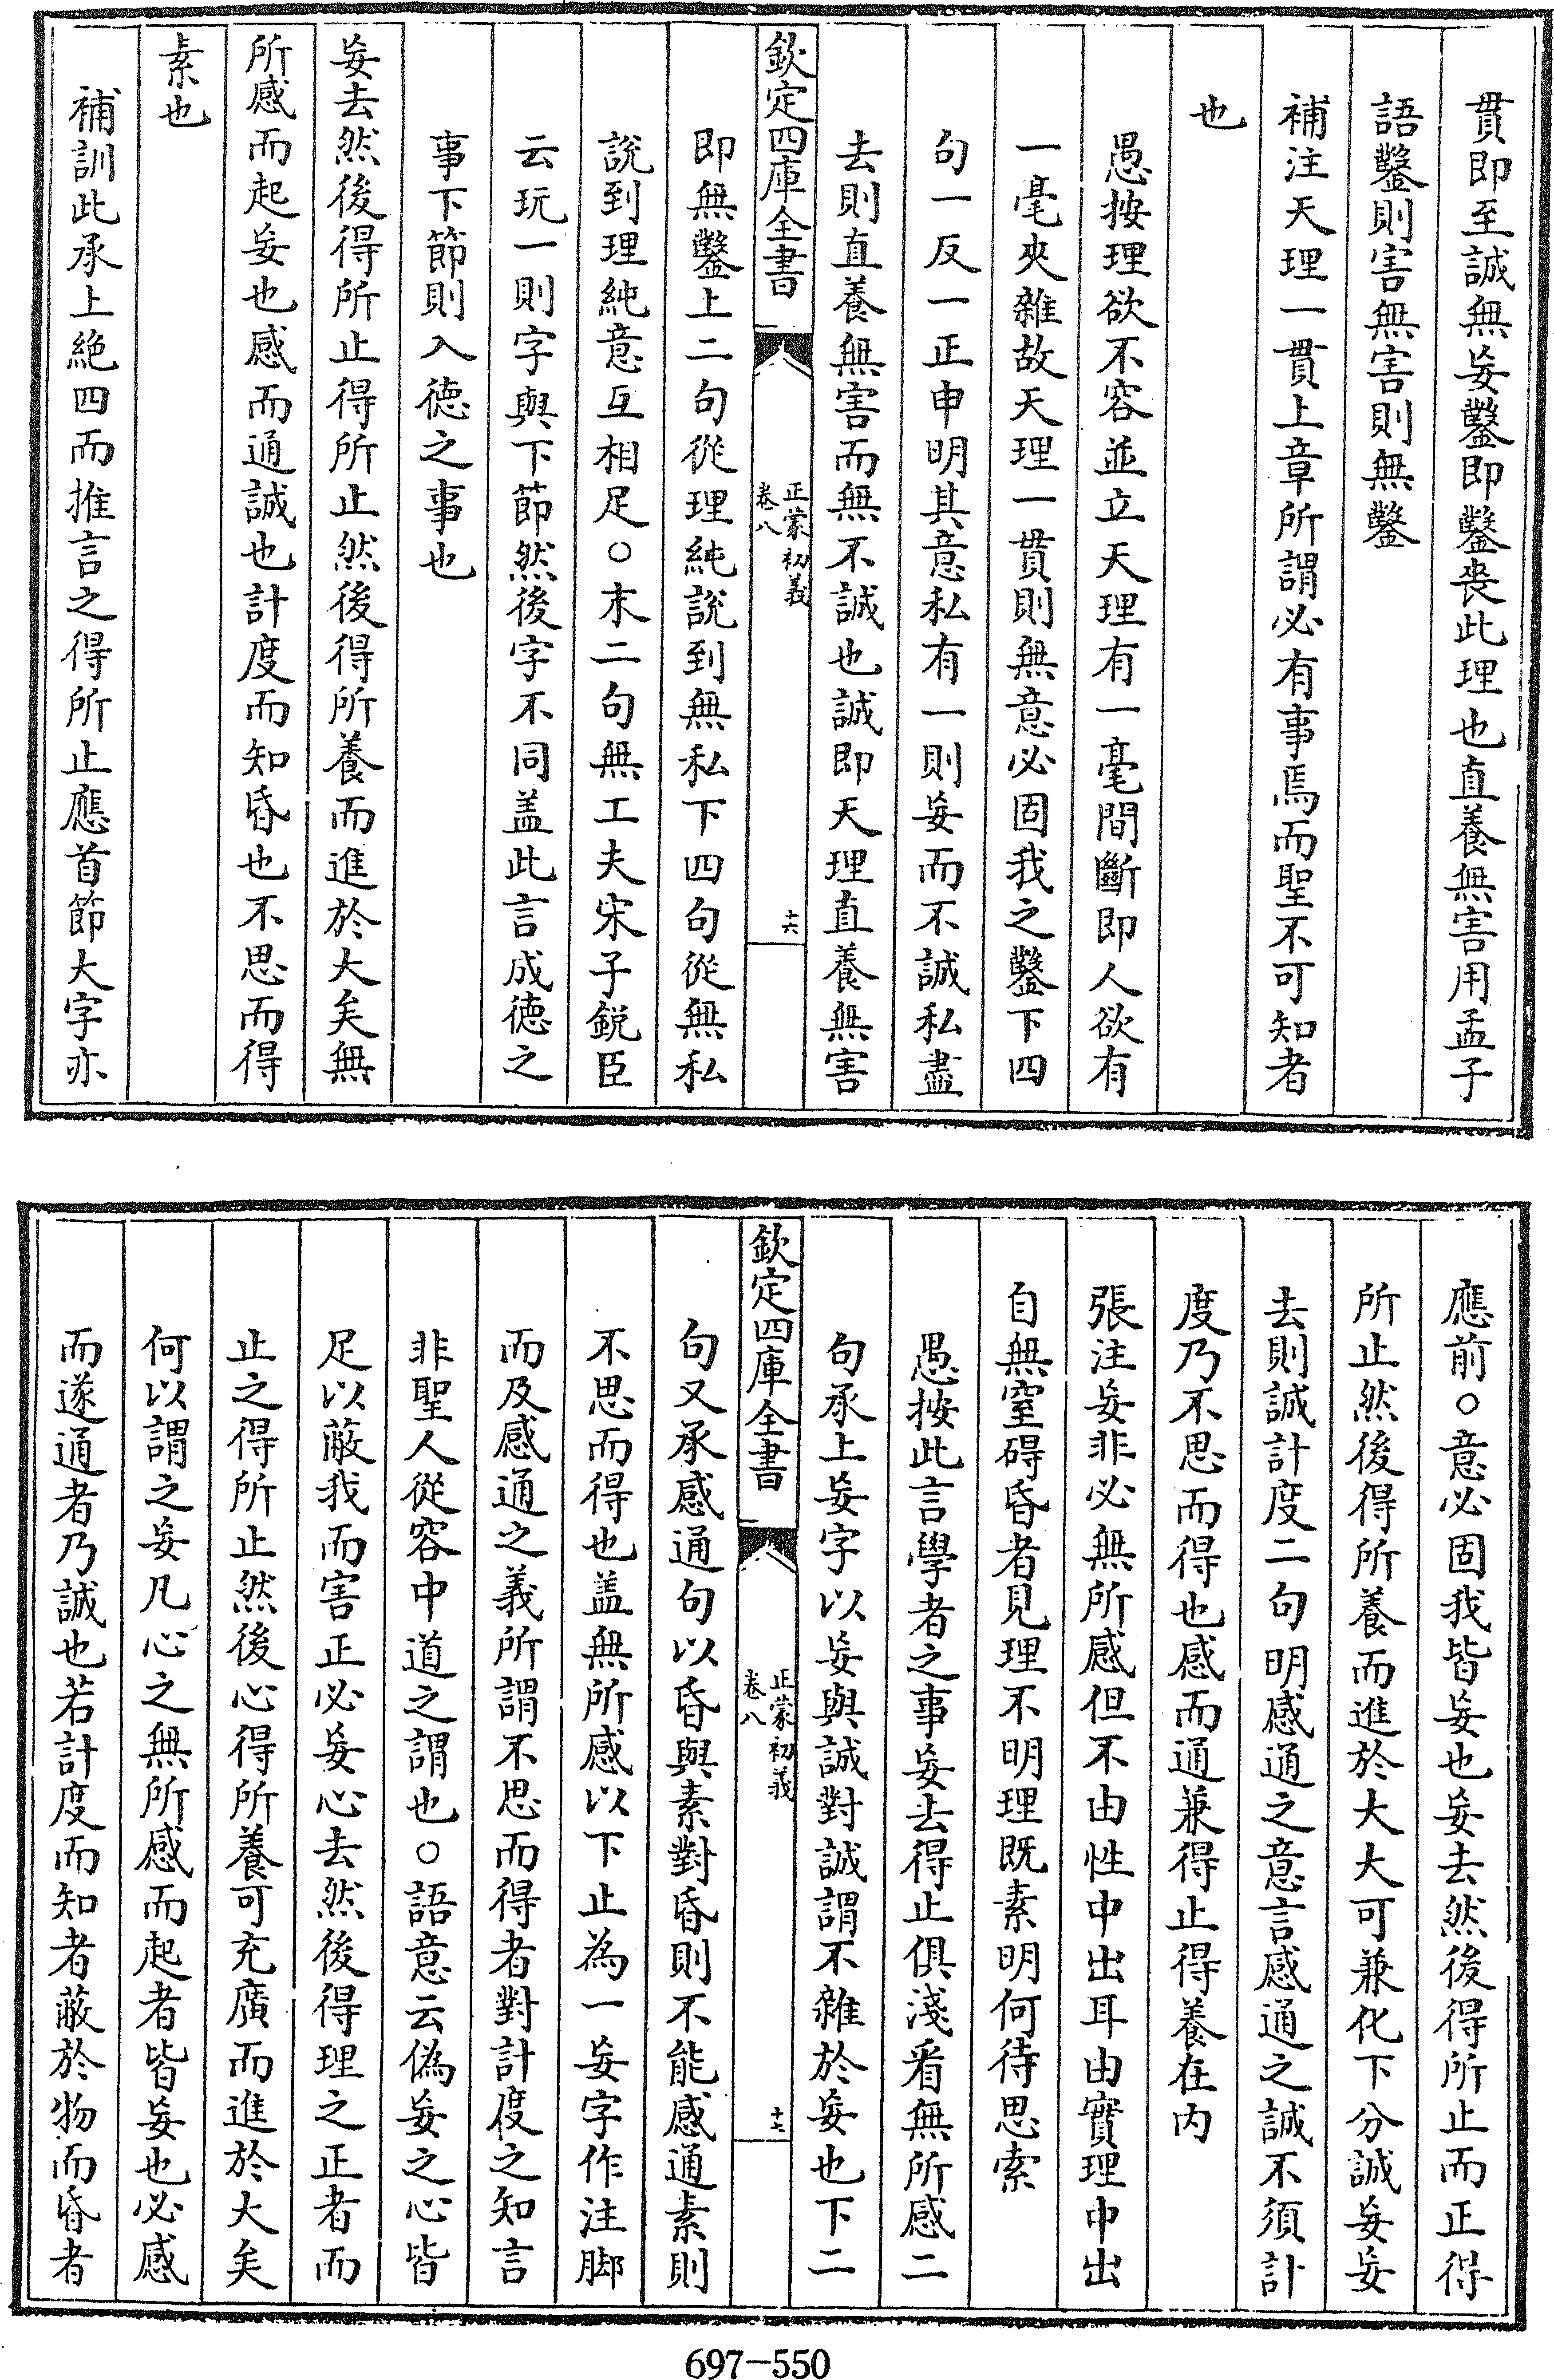 貫即至誠無妄鑿即鑿喪此理也直養無害用孟子
語鑿則害無害則無鑿
補注天理一貫上章所謂必有事焉而聖不可知者
也
愚按理欲不容並立天理有一毫間斷即人欲有
一毫夾雜故天理一貫則無意必固我之鑿下四
句一反一正申明其意私有一則妄而不誠私盡
去則直養無害而無不誠也誠即天理直養無害
欽定四庫全書
正蒙初義
卷八
十六
即無鑿上二句從理純說到無私下四句從無私
說到理純意互相足○末二句無工夫宋子鋭臣
云玩一則字與下節然後字不同盖此言成德之
事下節則入德之事也
妄去然後得所止得所止然後得所養而進於大矣無
所感而起妄也感而通誠也計度而知昏也不思而得
素也
補訓此承上絶四而推言之得所止應首節大字亦
應前○意必固我皆妄也妄去然後得所止而正得
所止然後得所養而進於大大可兼化下分誠妄妄
去則誠計度二句明感通之意言感通之誠不須計
度乃不思而得也感而通兼得止得養在内
張注妄非必無所感但不由性中出耳由實理中出
自無窒碍昏者見理不明理既素明何待思索
愚按此言學者之事妄去得止俱淺看無所感二
句承上妄字以妄與誠對誠謂不雜於妄也下二
欽定四庫全書
正蒙初義
卷八
十七
句又承感通句以昏與素對昏則不能感通素則
不思而得也盖無所感以下止為一妄字作注脚
而及感通之義所謂不思而得者對計度之知言
非聖人從容中道之謂也○語意云偽妄之心皆
足以蔽我而害正必妄心去然後得理之正者而
止之得所止然後心得所養可充廣而進於大矣
何以謂之妄凡心之無所感而起者皆妄也必感
而遂通者乃誠也若計度而知者蔽於物而昏者
697-550